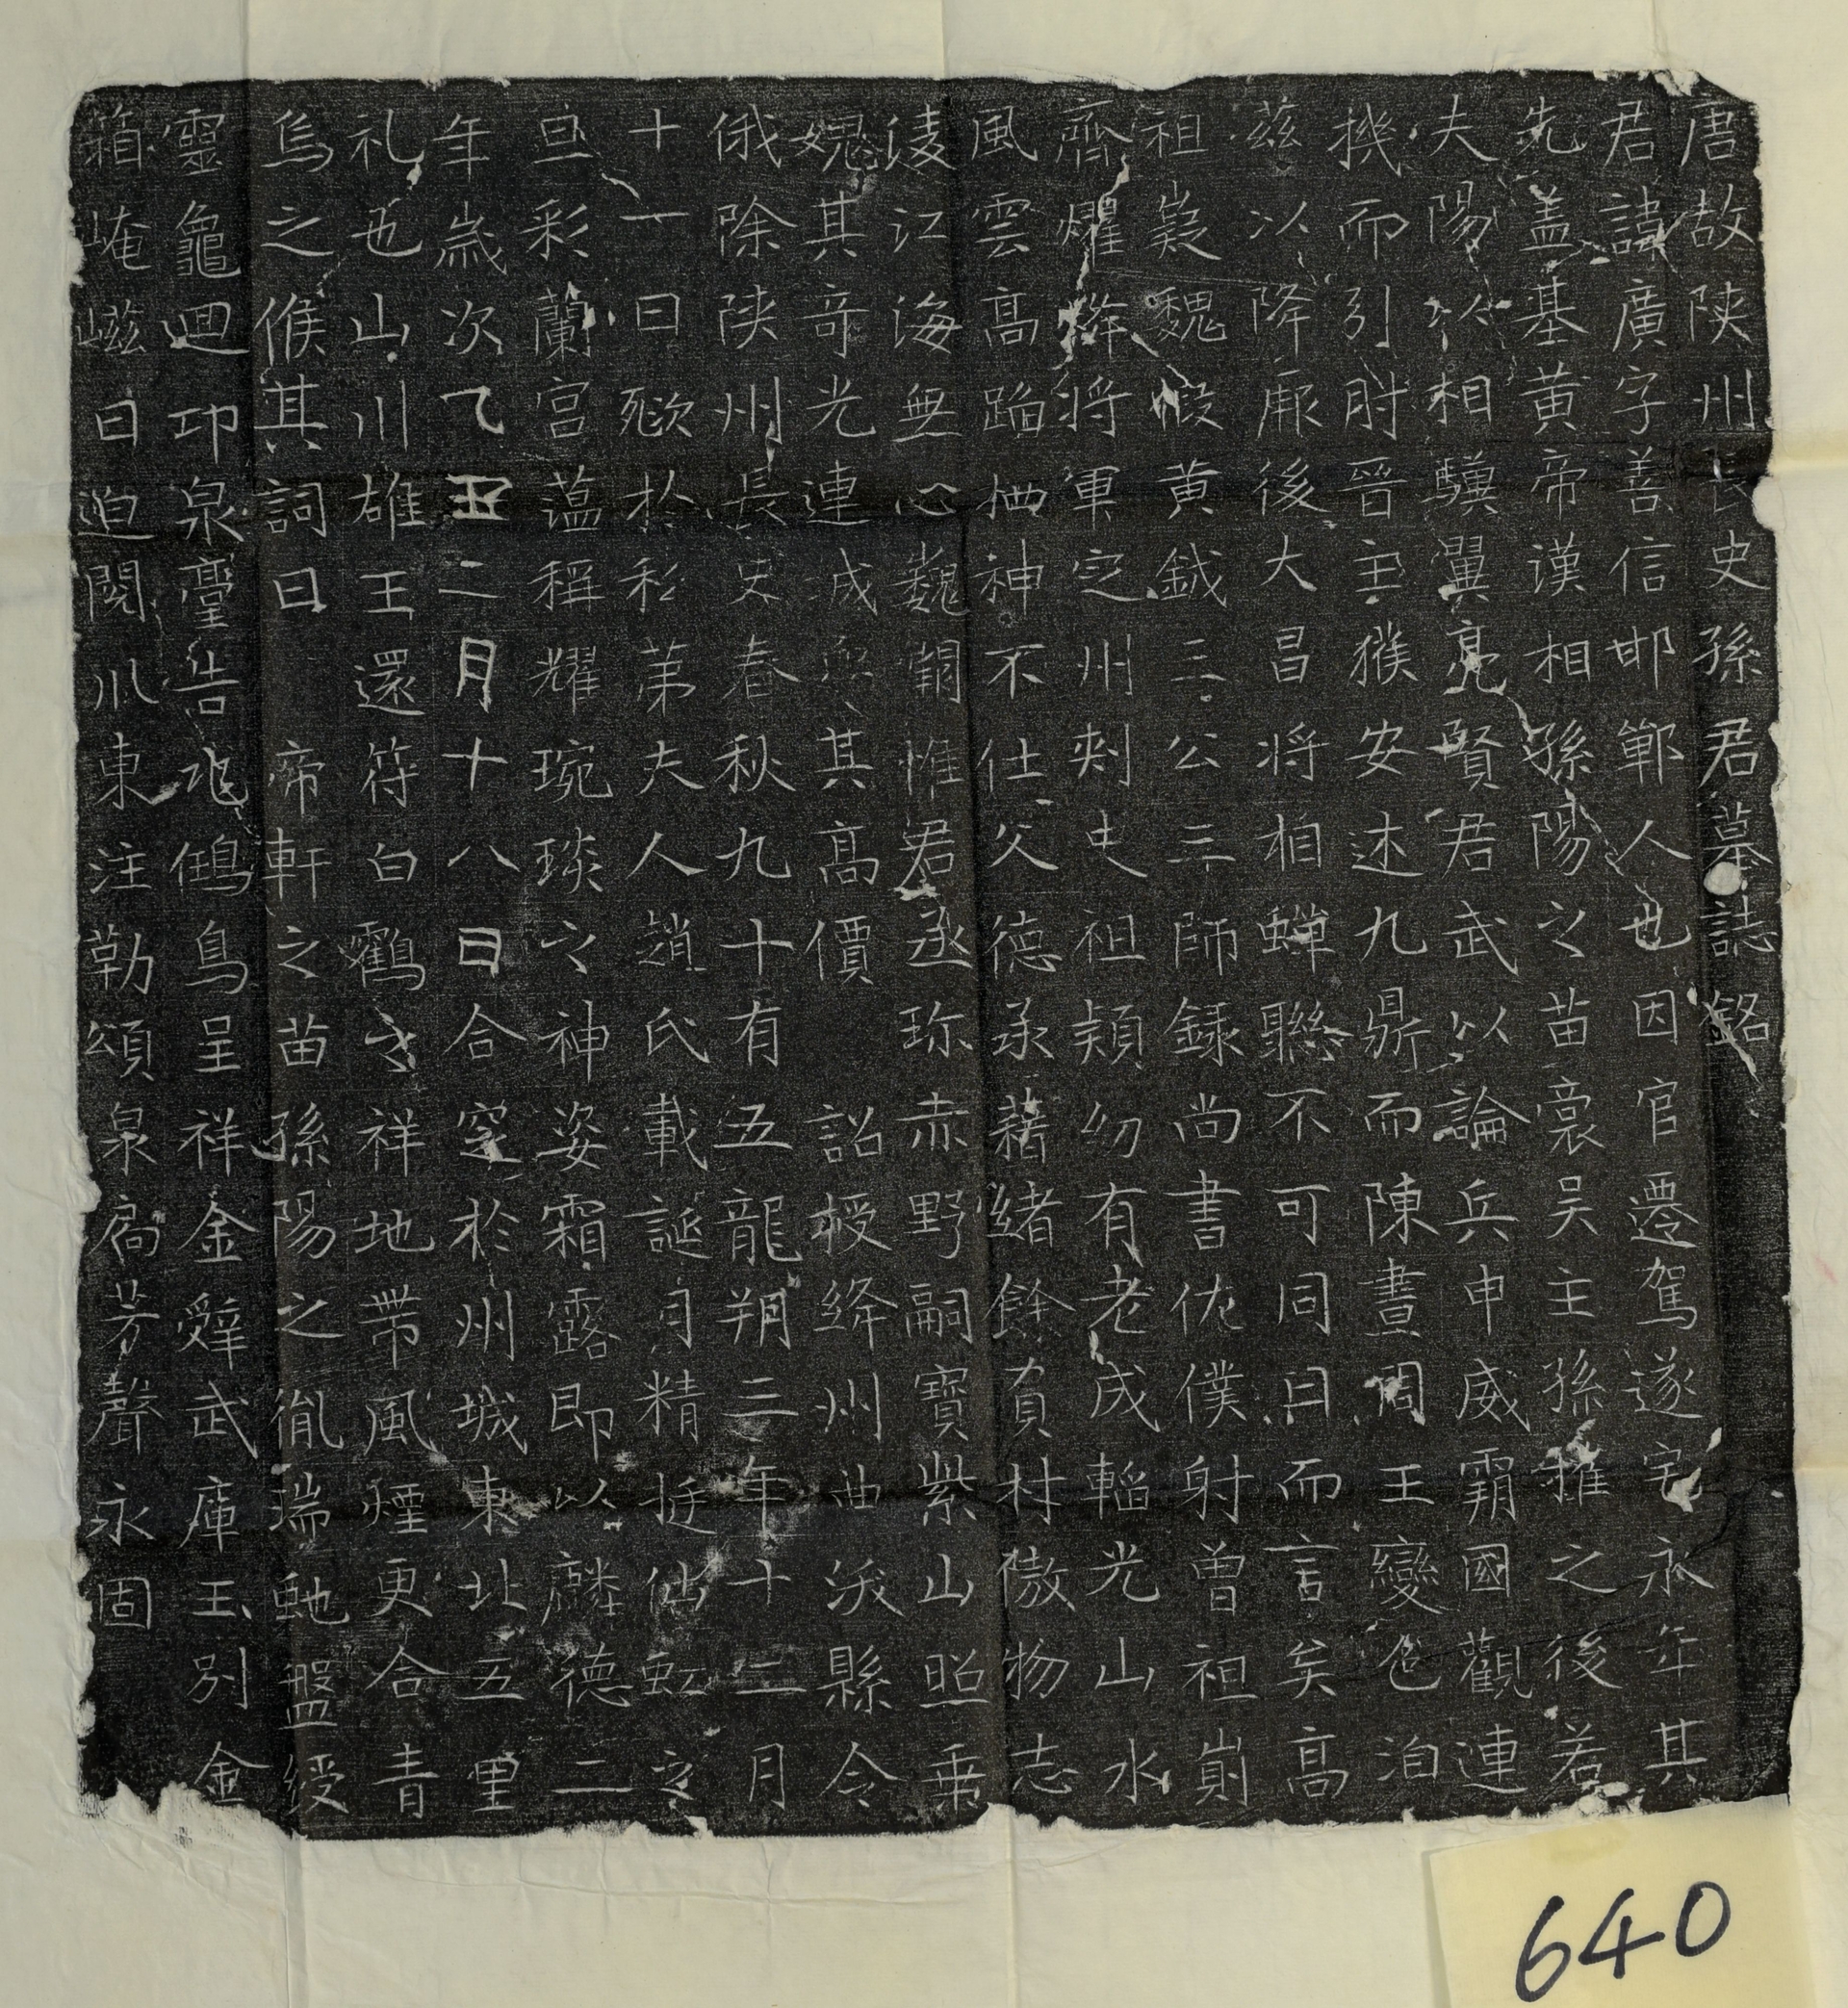 唐故陝州長史孫君墓誌銘
君諱廣字善信邯鄲人也因官遷駕遂宅永年其
先盖基黃帝漢相孫陽之苗裔吴主孫權之後若
夫陽以相驥翼亮賢君武以論兵申威霸國觀連
機而引肘晉主猴安述九鼎而陳晝周王變色洎
茲以降厥後大昌將相蟬聯不可同日而言矣高
祖嶷魏假黃鉞三公三師録尚書佐僕射曾祖崱
齊燿將軍定州刾史祖頴幼有老成韜光山水
風雲高蹈栖神不仕父德承藉緒餘負材傲物志
淩江海無心魏闕惟君丞珎赤野嗣寶紫山照乗
媿其奇光連城㒜其高價 詔授絳州曲沃縣令
俄除陝州長史春秋九十有五龍朔三年十二月
十一日㱃於私第夫人趙氏載誕月精挺仙虹之
亘彩蘭宮蘊稱耀琬琰之神姿霜露即以麟德二
年歲次乙丑二月十八日合窆於州城東北五里
礼也山川雄王還符白鸖之祥地帶風煙更合青
烏之候其詞曰 帝軒之苗孫陽之胤瑞虵盤綬
靈龜迴印泉臺告兆鵂鳥呈祥金辭武庫玉別金
箱崦嵫日迫閱川東注勒頌泉扃芳聲永固
640